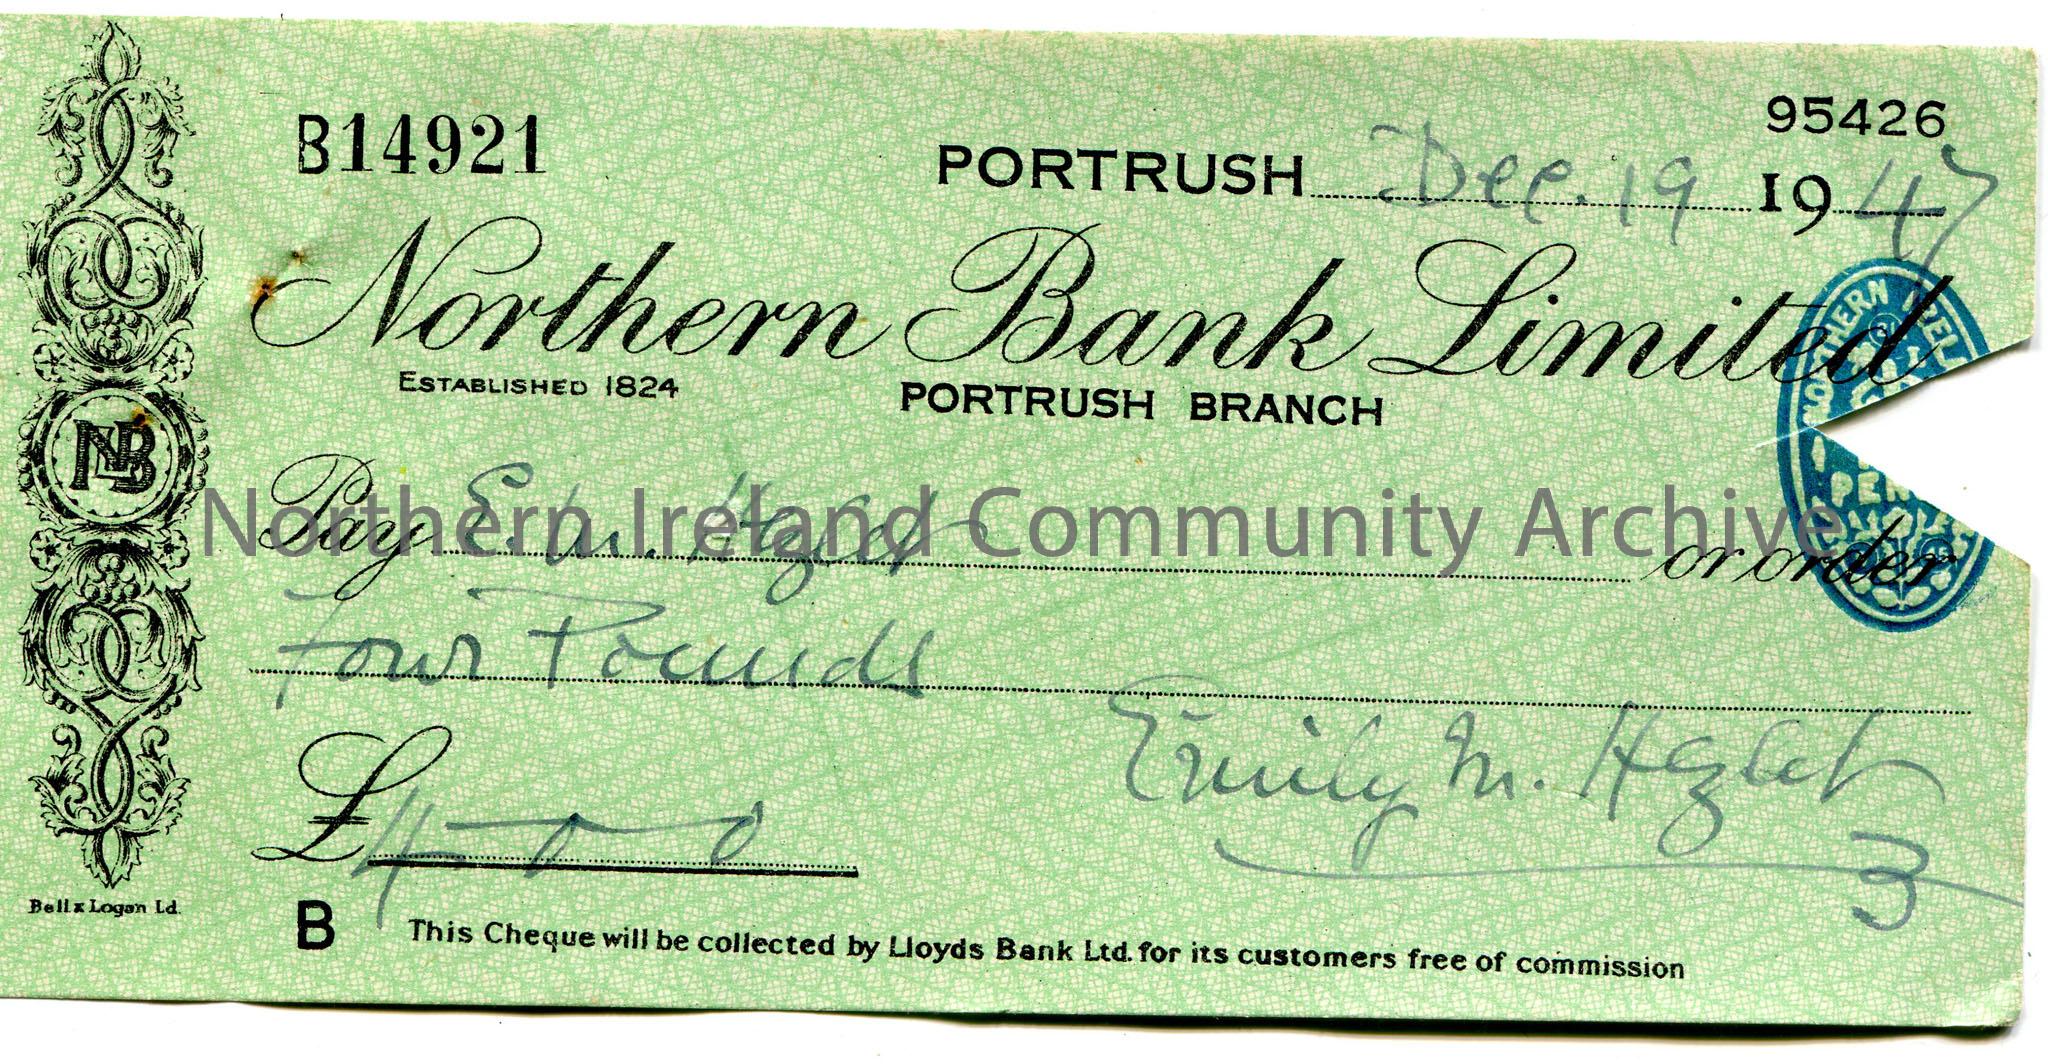 95426
B14921
PORTRUSH Dec. 19 1947
Northern Bank Limited
ESTABLISHED 1824
PORTRUSH BRANCH
NORTHERN IREL
PEN
NBL
Pay E. M. Hezlet or order
Four Pounds
Emily M. Hezlet
£4-0-0
3
Bell & Logan Ld.
B
This Cheque will be collected by Lloyds Bank Ltd. for its customers free of commission
Northern Ireland Community Archive